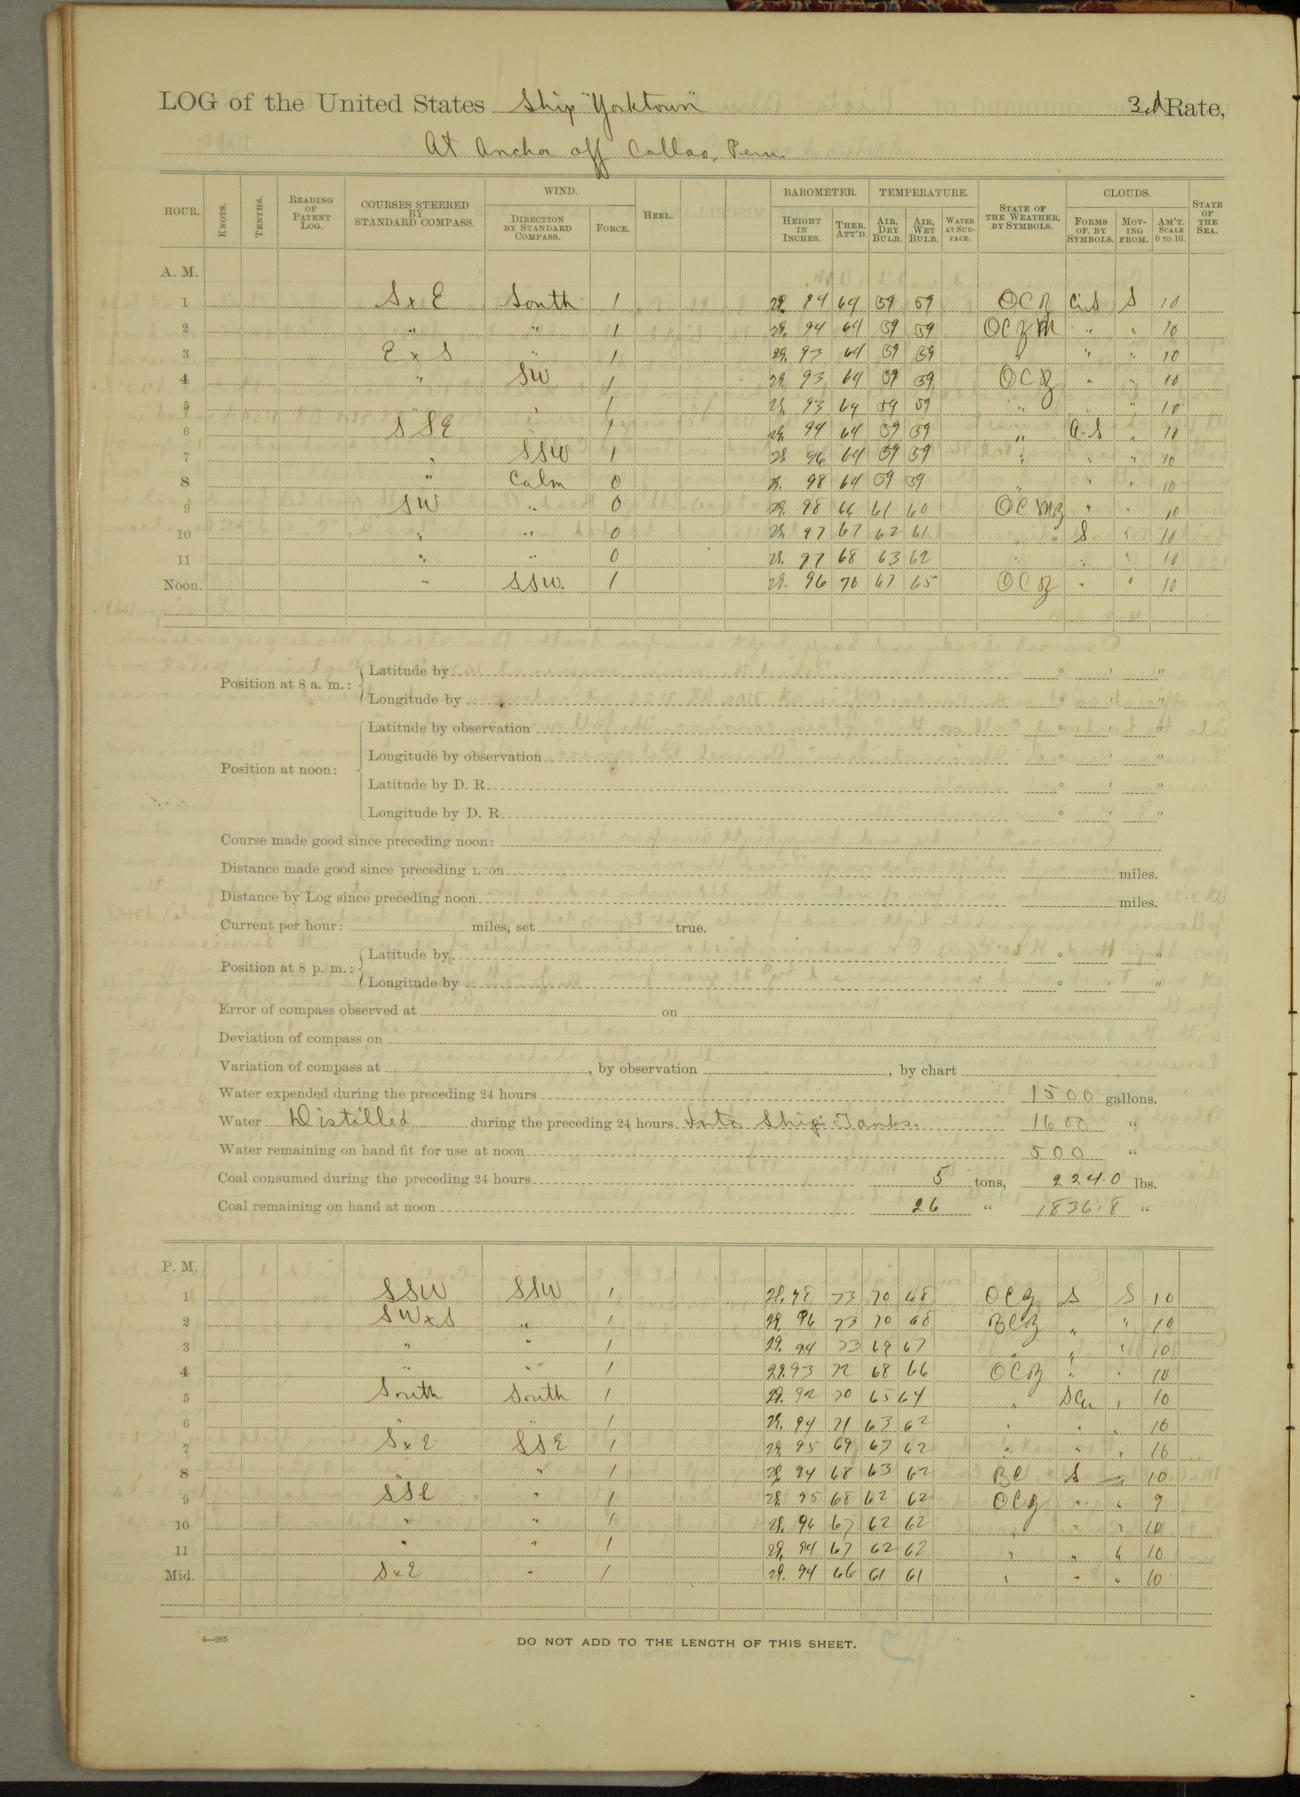 LOG of the United States Ship "Yorktown" 3rd Rate,
At Anchor off Callao, Peru.
HOUR. KNOTS. TENTHS. READING OF PATENT LOG. COURSES STEERED BY STANDARD COMPASS. WIND. DIRECTION BY STANDARD COMPASS. FORCE. HEEL. BAROMETER. HEIGHT IN INCHES. THER. ATT'D. TEMPERATURE. AIR, DRY BULB. AIR, WET BULB. WATER AT SURFACE. STATE OF THE WEATHER, BY SYMBOLS. CLOUDS. FORMS OF, BY SYMBOLS. MOVING FROM. AM'T. SCALE 0 TO 10. STATE OF THE SEA.
A. M.
1 SxE South 1 29. 94 64 59 59 OCZ Ci.S S 10
2 " " 1 29. 94 64 59 59 OCZM " " 10
3 ExS " 1 29. 93 64 59 59 " " " 10
4 " SW 1 29. 93 64 59 59 OCZ " " 10
5 " " 1 29. 93 64 59 59 " " " 10
6 SSE " 1 29. 94 64 59 59 " A-S " 10
7 " SSW 1 29. 96 64 59 59 " " " 10
8 " Calm 0 29. 98 64 59 59 " " " 10
9 SW " 0 29. 98 66 61 60 OCMZ " " 10
10 " " 0 29. 97 67 62 61 " S " 10
11 " " 0 29. 97 68 63 62 " " " 10
Noon. " SSW. 1 29. 96 70 67 65 OCZ " " 10
Position at 8 a. m.: Latitude by ° ' "
Longitude by ° ' "
Position at noon: Latitude by observation ° ' "
Longitude by observation ° ' "
Latitude by D. R. ° ' "
Longitude by D. R. ° ' "
Course made good since preceding noon:
Distance made good since preceding noon miles.
Distance by Log since preceding noon miles.
Current per hour: miles, set true.
Position at 8 p. m.: Latitude by ° ' "
Longitude by ° ' "
Error of compass observed at on
Deviation of compass on
Variation of compass at , by observation , by chart
Water expended during the preceding 24 hours 1500 gallons.
Water Distilled during the preceding 24 hours Into Ship's Tanks. 1600 "
Water remaining on hand fit for use at noon 500 "
Coal consumed during the preceding 24 hours 5 tons, 224.0 lbs.
Coal remaining on hand at noon 26 " 1836.8 "
P. M.
1 SSW SSW 1 29. 98 73 70 68 OCZ S S 10
2 SWxS " 1 29. 96 73 70 68 BCZ " " 10
3 " " 1 29. 94 73 69 67 " " " 10
4 " " 1 29. 93 72 68 66 OCZ " " 10
5 South South 1 29. 92 70 65 64 " SCu " 10
6 " " 1 29. 94 71 63 62 " " " 10
7 SxE SSE 1 29. 95 69 67 62 " " " 10
8 " " 1 29. 94 68 63 62 BC S " 10
9 SSE " 1 29. 95 68 62 62 OCZ " " 9
10 " " 1 29. 96 67 62 62 " " " 10
11 " " 1 29. 94 67 62 62 " " " 10
Mid. SxE " 1 29. 94 66 61 61 " " " 10
4—265
DO NOT ADD TO THE LENGTH OF THIS SHEET.